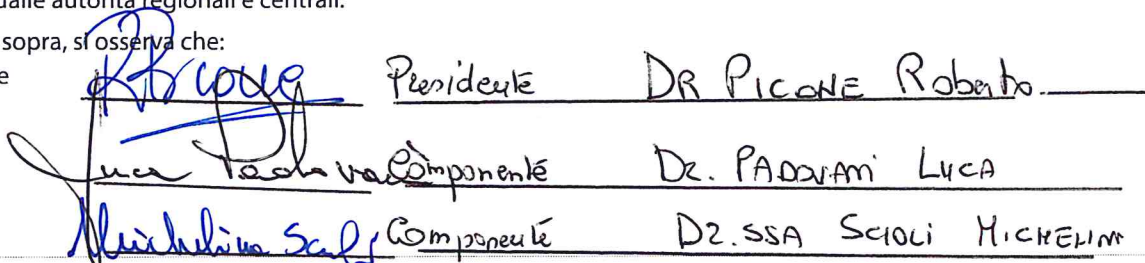 dalle autorità regionali e centrali.
sopra, si osserva che:
e
RPicone Presidente DR PICONE Roberto
Luca Padova Componente Dr. PADOVANI LUCA
Michelina Componente DR.SSA SCIOLI MICHELINA